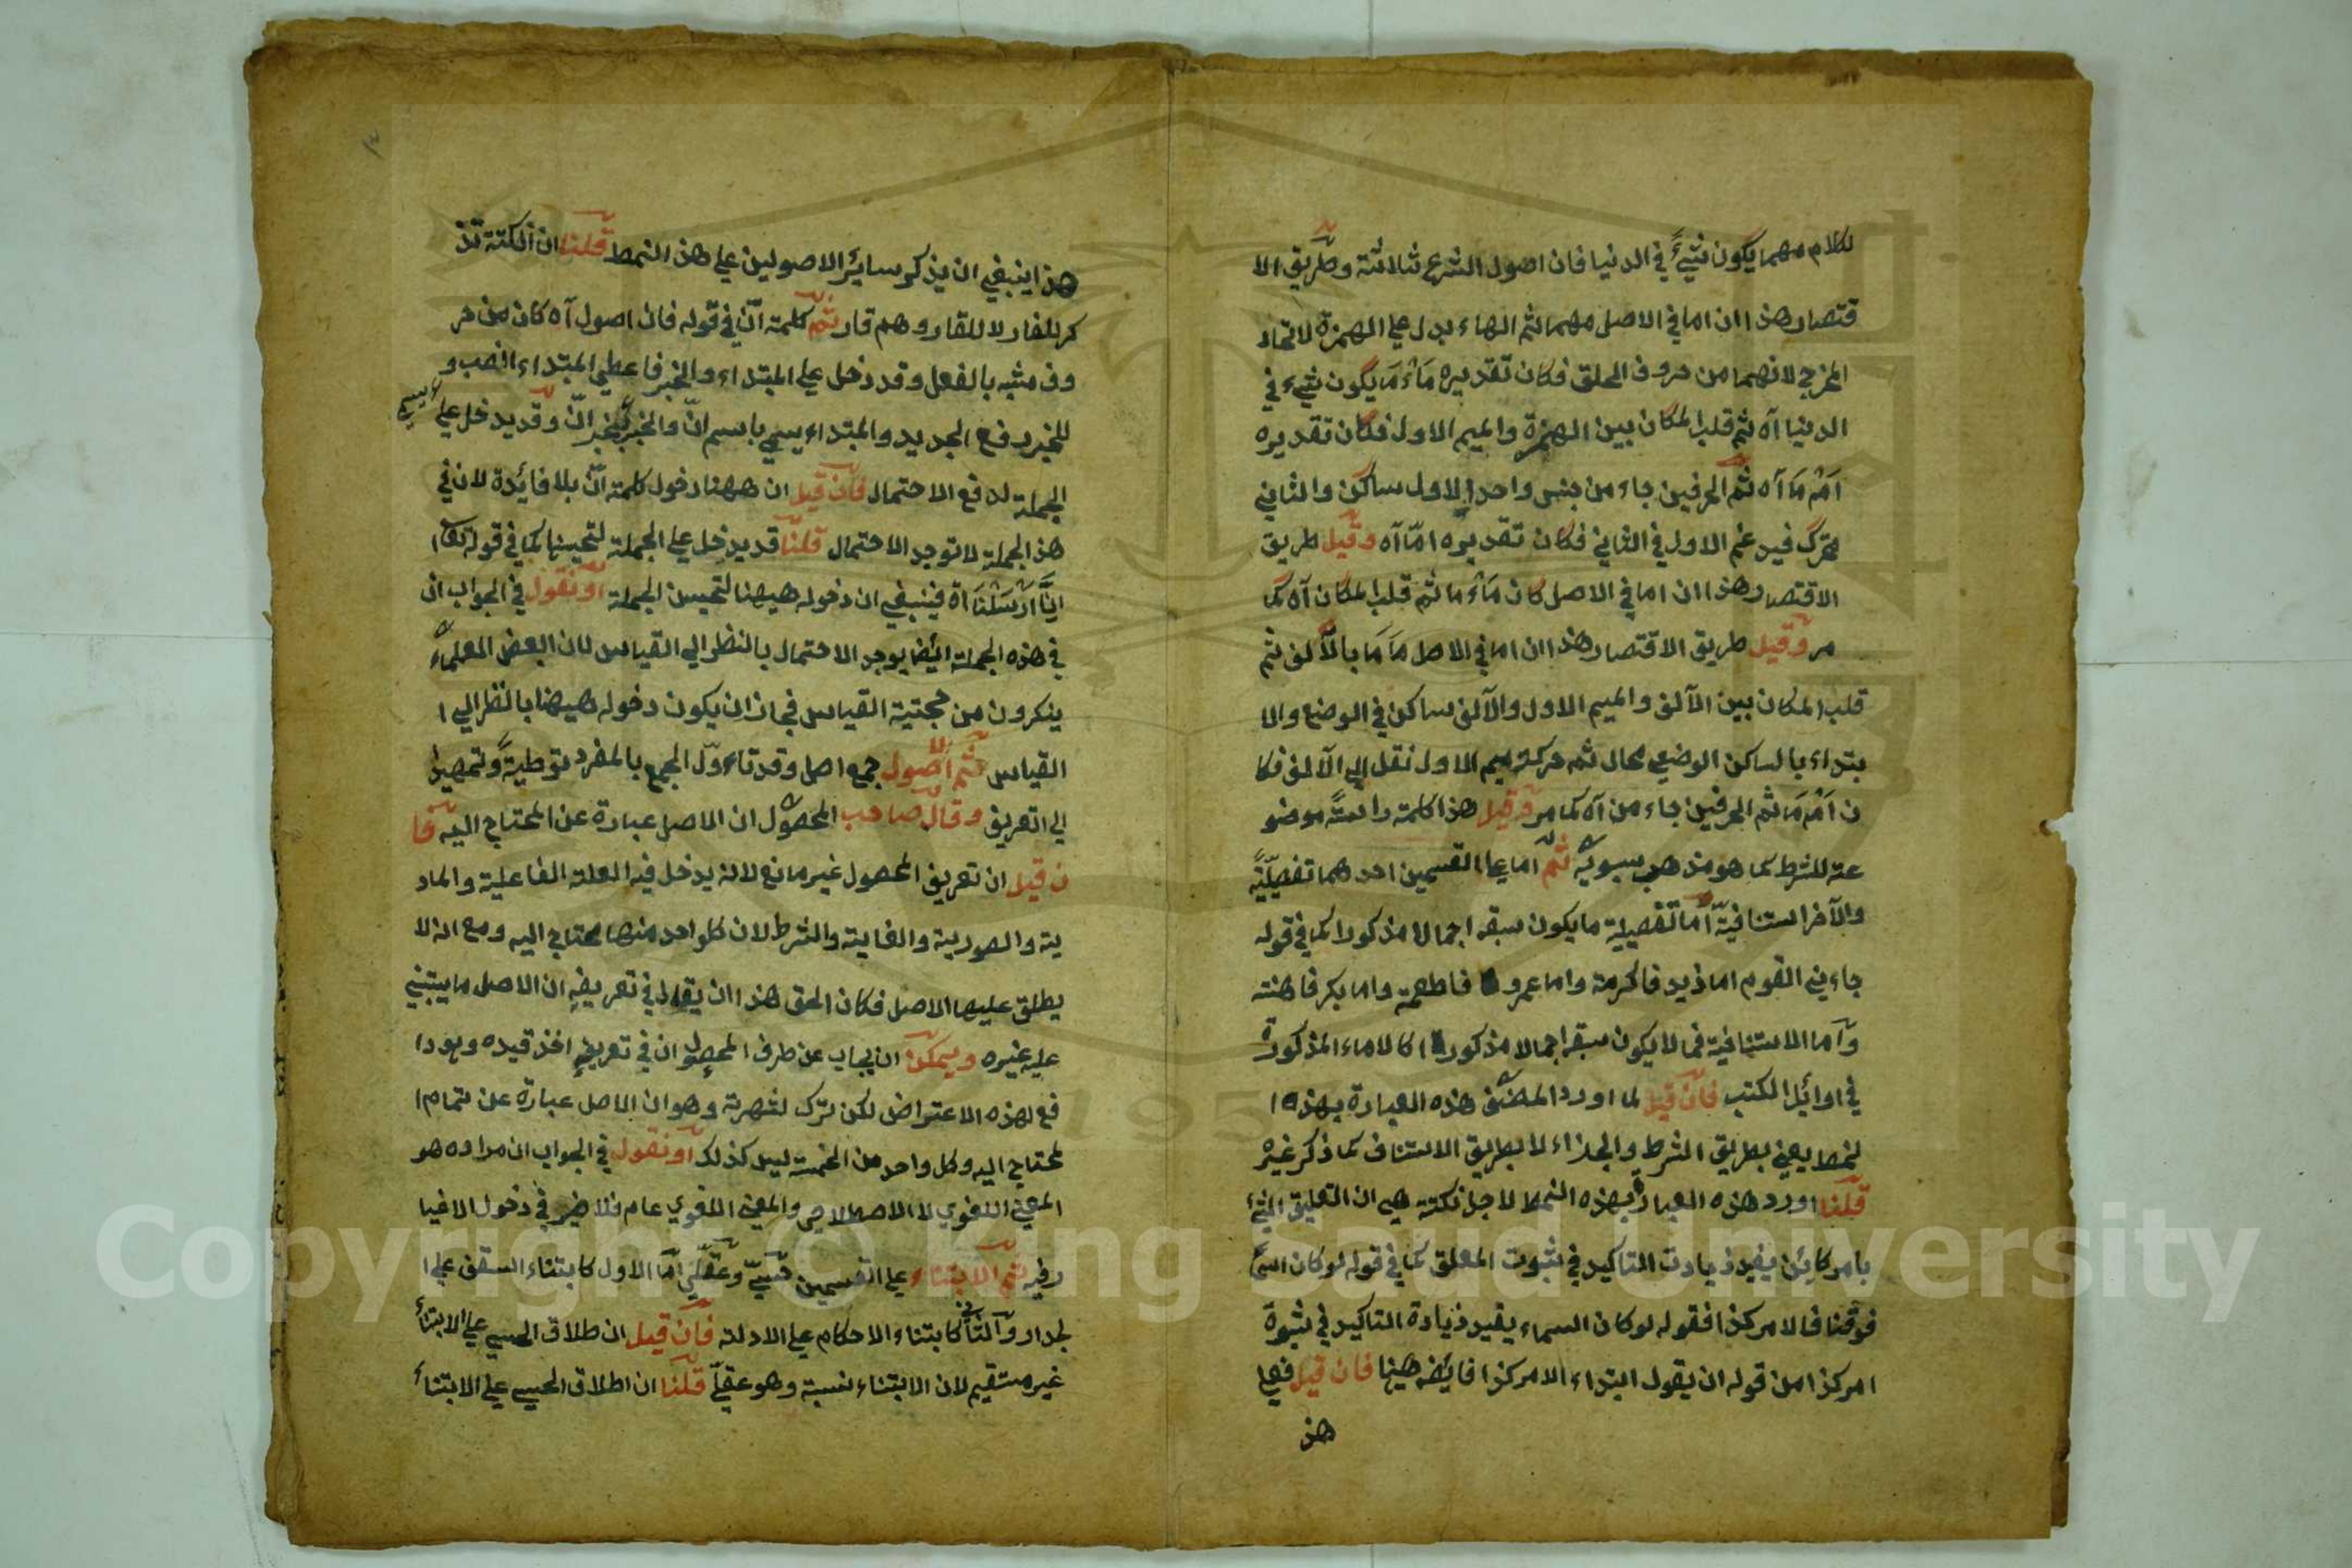 لكلام مهما يكون شيءً في الدنيا فان اصول الشرع ثلاثة وطريق الا
قتصار هذا ان اما في الاصل مهما ثم الهاء بدل على الهمزة لاتحاد
المخرج لانهما من حروف الحلق فكان تقديره مَأْمَا يكون شيء في
الدنيا آه ثم قلب المكان بين الهمزة والميم الاول فكان تقديره
اَمْ مَا آه ثم الحرفين جاء من جنس واحد الاول ساكن والثاني
متحرك فيدغم الاول في الثاني فكان تقديره امّا آه وقيل طريق
الاقتصار هذا ان اما في الاصل كان مَأْ ما ثم قلب المكان آه كما
مر وقيل طريق الاقتصار هذا ان اما في الاصل مَا مَا بالآلف ثم
قلب المكان بين الآلف والميم الاول والآلف ساكن في الوضع والا
بتداء بالساكن الوضعي محال ثم حركة ميم الاول نقل الى الآلف فكا
ن اَمْ مَا ثم الحرفين جاء من آه كما مر وقيل هذا كلمة راسةً موضو
عة للشرط كما هو مذهب سيبويه ثم اما على القسمين احدهما تفصيليّة
والآخر استنافيّة اما تفصيلية ما يكون سبقه اجمالا مذكورا كما في قوله
جاءني القوم اما زيد فاكرمته واما عمرو فاطعمته واما بكر فاهنته
واما الاستنافية فما لا يكون سبقه اجمالا مذكورا كالاماء المذكورة
في اوائل الكتب فان قيل لما اورد المصنف هذه العبارة بهذه ا
لنمط يعني بطريق الشرط والجزاء لا بطريق الاستناف كما ذكر غيره
قلنا اورد هذه العبارة بهذه النمط لاجل نكتة هي ان التعليق الشيء
بامر كائن يفيد زيادت التاكيد في ثبوت المعلق كما في قوله لو كان السما
فوقنا فالامر كذا فقوله لو كان السماء يفيد زيادة التاكيد في ثبوة
امر كذا من قوله ان يقول ابتداء الامر كذا فايضه هيهنا فان قيل فعلى
هذ
هذا ينبغي ان يذكر سائر الاصولين على هذ النمط قلنا ان النكتة تذ
كر للفار لا للقار وهم قار ثم كلمة انّ في قوله فان اصول آه كان من حر
وف مشبه بالفعل وقد دخل على المبتداء والخبر فاعطى المبتداء النصب و
للخبر رفع الجديد والمبتداء يسمي باسم انّ والخبر بخبر انّ وقد يدخل على
الجملة لدفع الاحتمال فان قيل ان ههنا دخول كلمة انّ بلا فائدة لان في
هذ الجملة لا توجد الاحتمال قلنا قد يدخل على الجملة لتحسينها كما في قوله تعا
اِنَّا اَرْسَلْنَا آه فينبغي ان دخوله هيهنا لتحسن الجملة او نقول في الجواب ان
في هذه الجملة ايضا يوجد الاحتمال بالنظر الى القياس لان البعض العلماء
ينكرون من حجتية القياس فجاز ان يكون دخوله هيهنا بالنظر الى ا
القياس ثم الاصول جمع اصل وقد تاءوّل الجمع بالمفرد توطيةً وتمهيدا
الى التعريف وقال صاحب المحصول ان الاصل عبارة عن المحتاج اليه فا
ن قيل ان تعريف المحصول غير مانع لانه يدخل فيه العلة الفاعلية والماد
ية والصورية والغاية والشرط لان كلواحد منها محتاج اليه ومع انه لا
يطلق عليها الاصل فكان الحق هذا ان يقال في تعريفه ان الاصل ما يبتني
عليه غيره ويمكن ان يجاب عن طرف المحصول ان في تعريفه اخذ قيده وهو دا
فع لهذه الاعتراض لكن ترك لشهرته وهو ان الاصل عبارة عن تمام ا
لمحتاج اليه وكل واحد من الخمسة ليس كذلك او نقول في الجواب ان مراده هو
المعني اللغوي لا الاصطلاحي والمعني اللغوي عام فلا ضير في دخول الاغيا
ر فيه ثم الابتناء على القسمين حسّيّ وعقليّ اما الاول كابتناء السقف على ا
لجدار والثاني كابتناء الاحكام على الادلة فان قيل ان طلاق الحسي على الابتناء
غير مستقيم لان الابتناء نسبة وهو عقليّ قلنا ان اطلاق الحسي على الابتناء
Copyright © King Saud University
1957